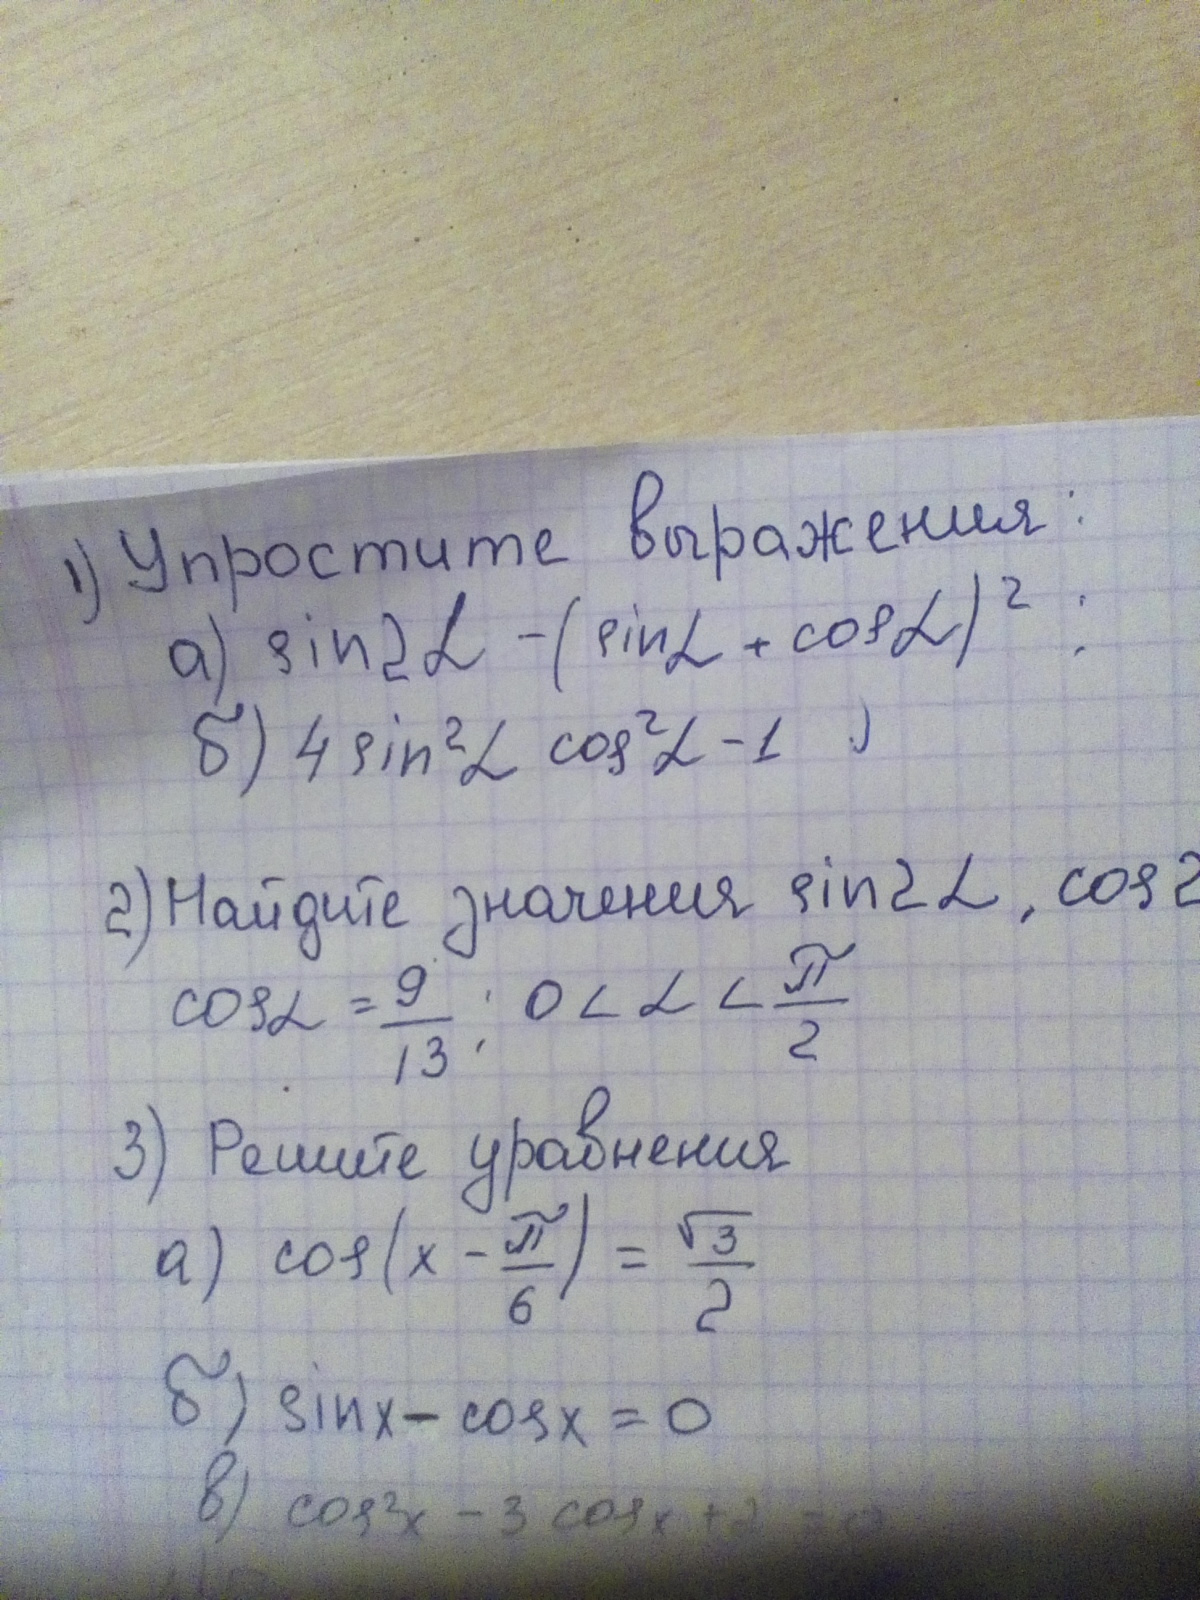 1) Упростите выражения:
а) sin2α - (sinα + cosα)² ;
б) 4 sin²α cos²α - 1 ;
2) Найдите значения sin2α, cos2
cosα = 9/13 ; 0 < α < π/2
3) Решите уравнения
а) cos(x - π/6) = √3/2
б) sinx - cosx = 0
в) cos²x - 3 cosx + 2 = 0